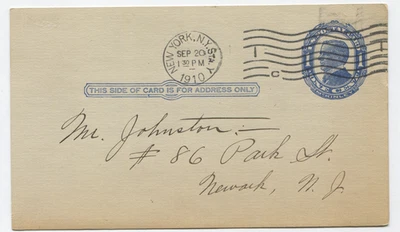 NEW YORK, N.Y. STA. Y
SEP 20
1 30 PM
1910
1
C
THIS SIDE OF CARD IS FOR ADDRESS ONLY
Mr. Johnston:—
# 86 Park St.
Newark, N. J.